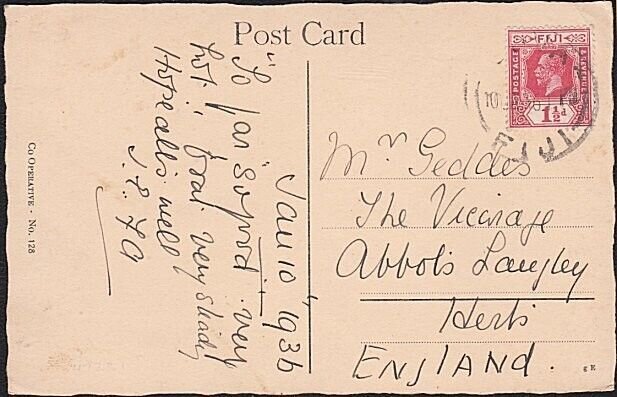 Post Card
Jan 10" 1936
"So far" so good. very
hot; boat very shady
Hope all is well
FIJI
POSTAGE
& REVENUE
1½d
FIJI
Mr Geddes
The Vicarage
Abbots Langley
Herts
ENGLAND.
CO OPERATIVE · No. 128